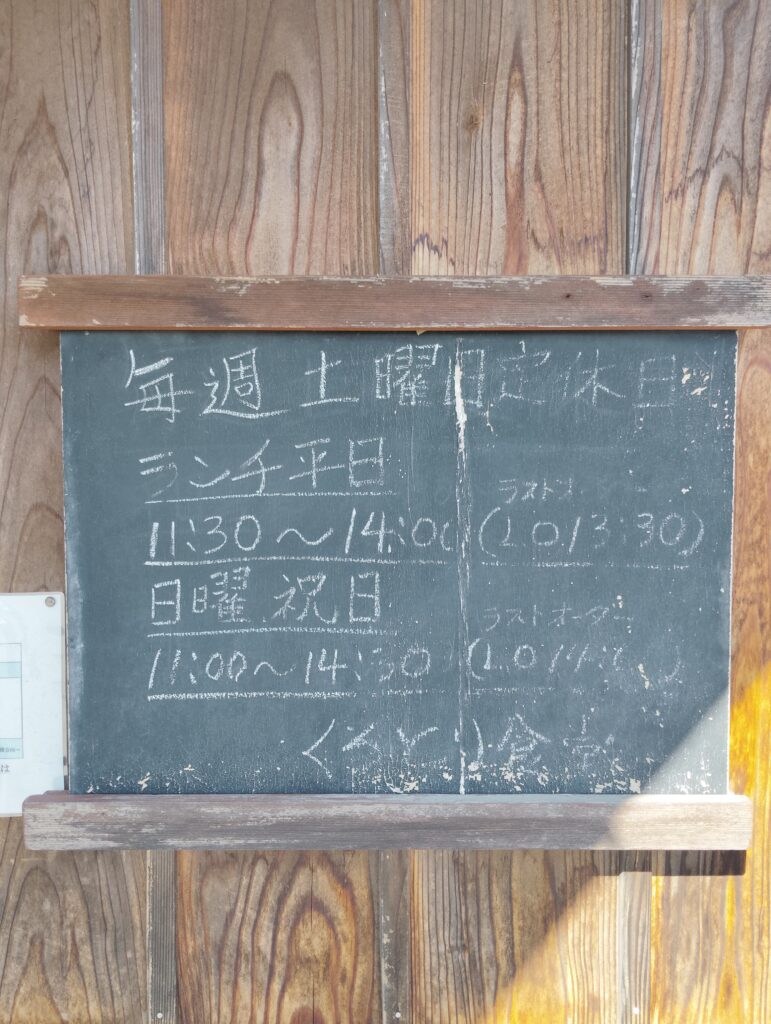 毎週土曜日定休日
ランチ平日
ラストオーダー
11:30～14:00 (LO13:30)
日曜.祝日
ラストオーダー
11:00～14:30 (LO14:
食堂
は